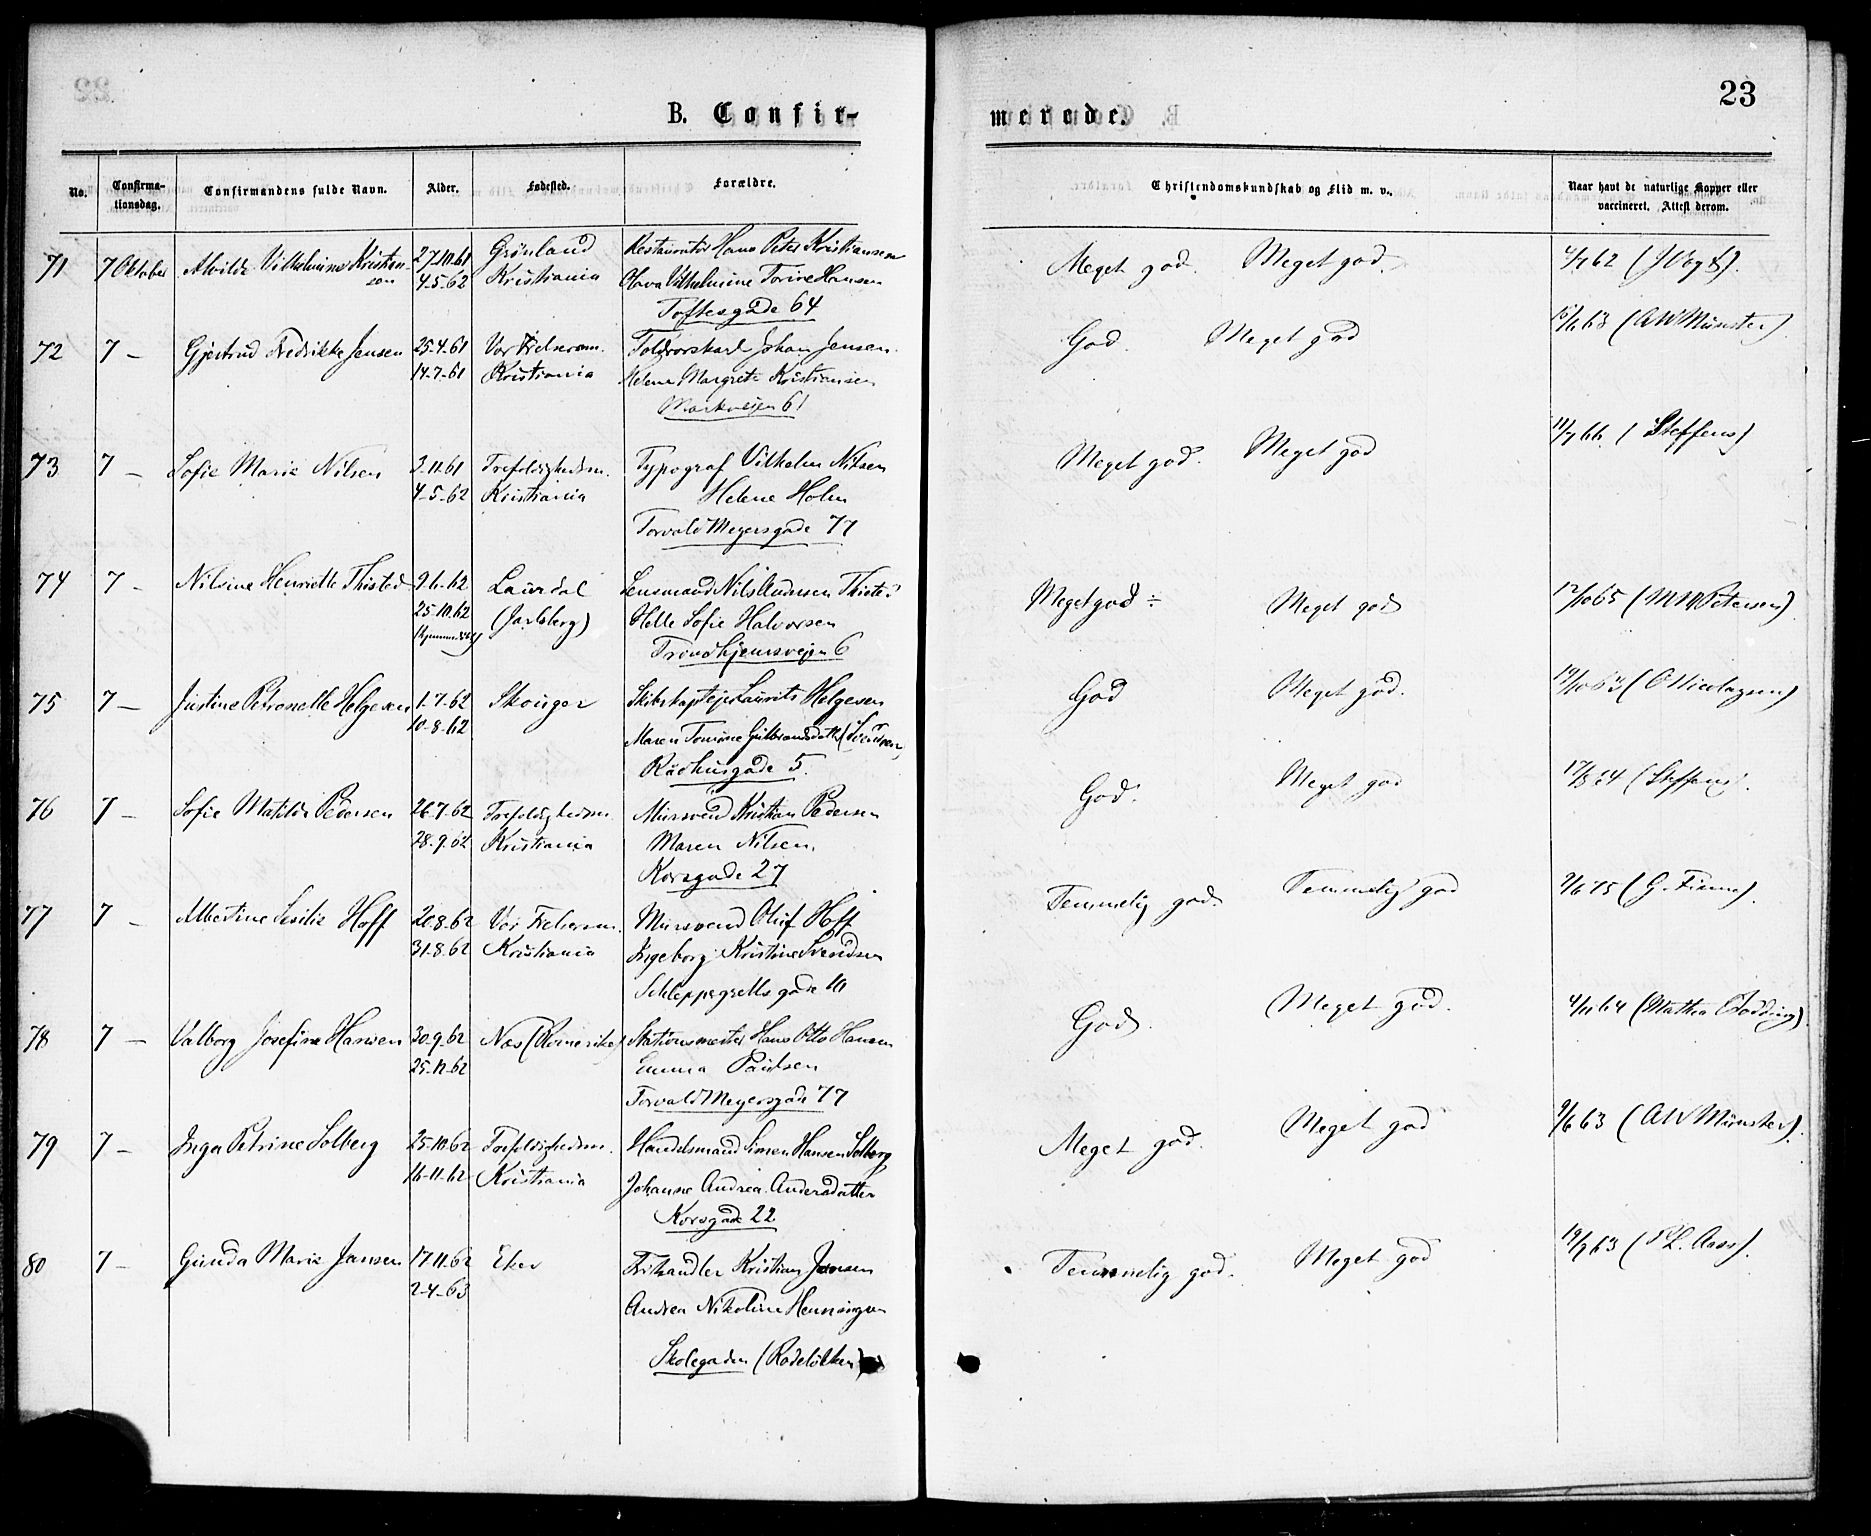 23
B. Confir-
merede.
No.
Confirma-
tionsdag.
Confirmandens fulde Navn.
Alder.
Fødested.
Forældre.
Christendomskundskab og Flid m. v.
Naar havt de naturlige Kopper eller
vaccineret. Attest derom.
71 7 Oktober Alvilde Vilhelmine Kristen- 27.10.61 Grønland Restauratør Hans Peter Kristiansen Meget god. Meget god. 4/7 62 (J Vogt).
sen 4-5-62 Kristiania Olava Vilhelmine Torine Hansen
Toftesgade 64
72 7 – Gjertrud Fredrikke Jensen 25-4-61 Vor Frelserem. Toldvorskarl Johan Jensen. God. Meget god (AW Münster).
14-7-61 Kristiania Helene Margrete Kristiansen
Markveien 61
73 7 – Sofie Marie Nilsen 3-11-61 Trefoldighedsm. Typograf Vilhelm Nilsen Meget god. Meget god 11/7 66 (Steffens)
4-5-62 Kristiania Helene Holm
Torvald Meyersgade 77
74 7 – Nilsine Henriette Thisted 9-6-62 Laurdal Lensmand Nils Andersen Thisted Meget god ÷ Meget god 12/10 65 (MM Petersen)
25-10.62 (Jarlsberg) Helle Sofie Halvorsen
Trondhjemsveien 6
75 7 – Justine Petronelle Helgesen 1-7-62 Skouger Skibskaptejn Laurits Helgesen God Meget god. (O Nicolaysen)
10-8-62 Maren Tomine Gulbrandsdatter (Svendsen)
Rådhusgade 5.
76 7 – Sofie Matilde Pedersen 26-7-62 Trefoldighedsm. Mursvend Kristian Pedersen God. Meget god 17/8 64 (Steffens).
28-9-62 Kristiania Maren Nilsen.
Korsgade 27
77 7 – Albertine Sesilie Hoff 20-8-62 Vor Frelserem. Mursvend Oluf Hoff Temmelig god. Temmelig god 9/6 75 (G. Finne).
31-8-62 Kristiania Ingeborg Kristine Svendsen
Schleppegrells gade 10
78 7 – Valborg Josefine Hansen 30-9-62 Næs (Romerike) Stationsmester Hans Otto Hansen God. Meget god. 4/11 64 (Mathea Stodding)
25-12-62 Emma Paulsen
Torvald Meyersgade 77
79 7 – Inga Petrine Solberg 25-10-62 Trefoldighedsm. Handelsmand Simen Hansen Solberg Meget god. Meget god 9/6 63 (AW Münster).
16-11-62 Kristiania Johanne Andrea Andersdatter
Korsgade 22
80 7 – Gunda Marie Jansen 17-11-62 Eker Frihandler Kristian Jansen Temmelig god. Meget god 19/9 63 (P L. Aass).
2-4-63 Andrea Nikoline Henningsen
Skolegaden (Rodeløkken)